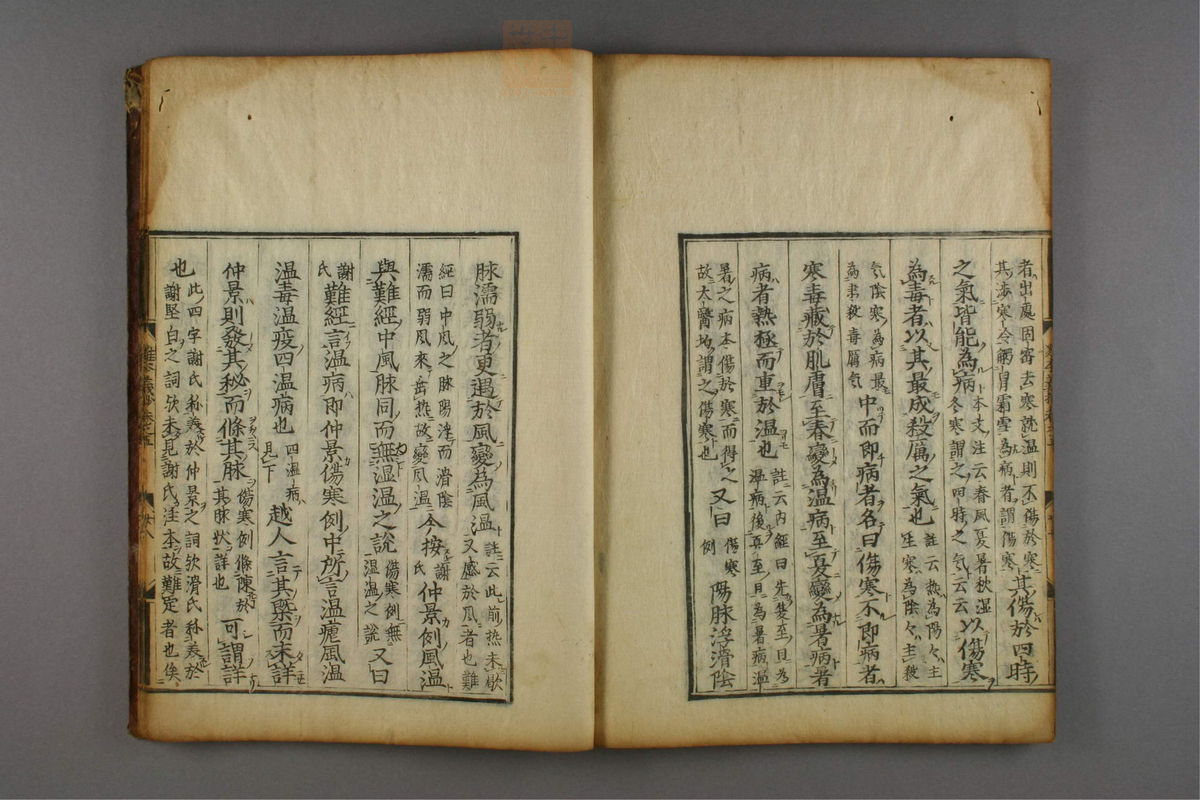 者出處固審去寒就溫則不傷於寒
其涉寒冷觸冒霜雪為病者謂傷寒 其傷於四時
之氣皆能為病 本文注云春風夏暑秋湿
冬寒謂之四時之气云云 以傷寒
為毒者以其最成殺厲之氣也 註云熱為陽々主
生寒為陰々主殺
气陰寒為病最
為肅殺毒厲气 中而即病者名曰傷寒不即病者
寒毒藏於肌膚至春變為温病至夏變為暑病暑
病者熱極而重於温也 註云内經曰先夏至日為
温病後夏至日為暑病温
暑之病本傷於寒而得之
故太醫均謂之傷寒也 又曰 傷寒
例 陽脉浮滑陰
脉濡弱者更遇於風變為風温 註云此前热未歇
又感於风者也難
經曰中风之脉陽浮而滑陰
濡而弱风來乗热故變风温 今按 謝
氏 仲景例風温
與難經中風脉同而無湿温之説 傷寒例無
湿温之説 又曰
謝
氏 難經言温病即仲景傷寒例中所言温瘧風温
温毒温疫四温病也 四温病
見下 越人言其槩而未詳
仲景則發其秘而條其脉 傷寒例條陳於
其脉状詳也 可謂詳
也 此四字謝氏称義於仲景之詞欤滑氏称義於
謝堅白之詞欤未見謝氏注本故難定者也俟